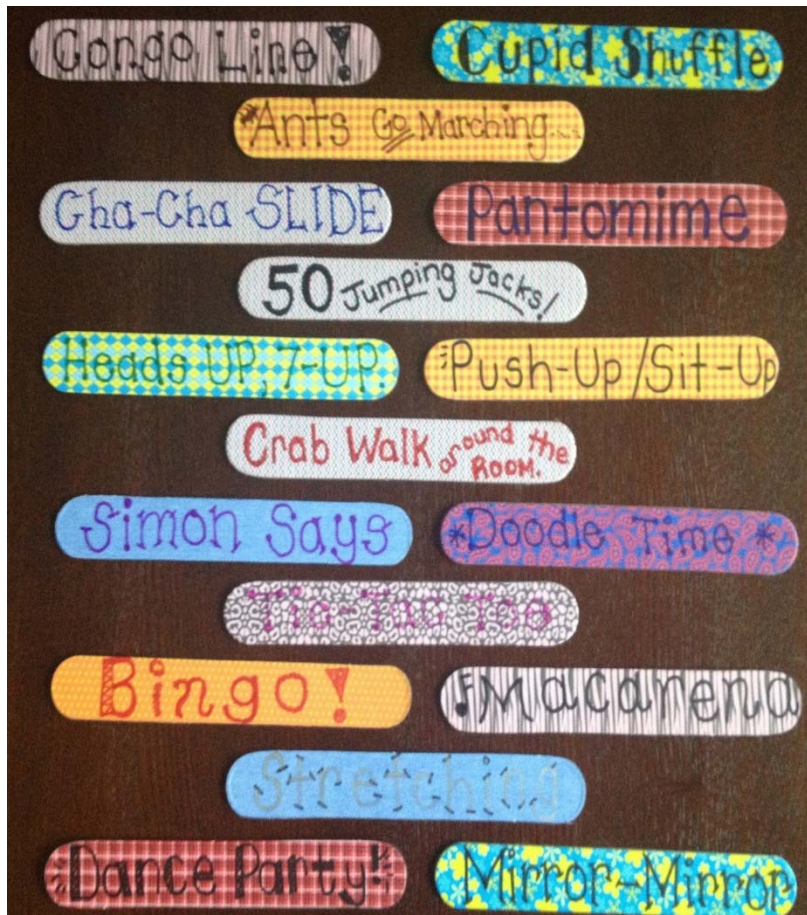 Congo Line!
Cupid Shuffle
Ants Go Marching...
Cha-Cha SLIDE
Pantomime
50 Jumping Jacks!
Heads UP, 7-UP.
Push-Up/Sit-Up
Crab Walk around the ROOM.
Simon Says
*Doodle Time*
Tic-Tac Toe
Bingo!
Macarena
Stretching
Dance Party!
Mirror-Mirror